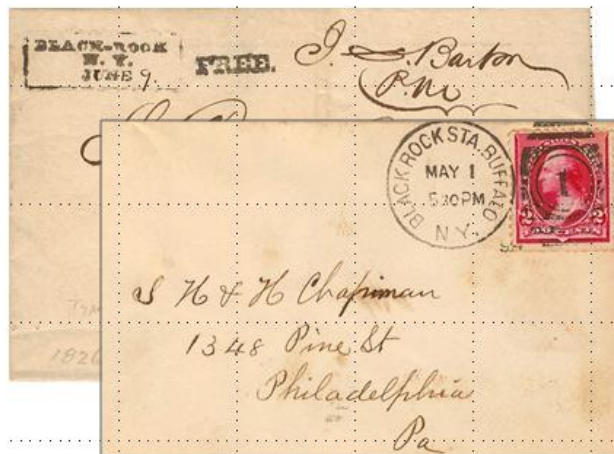 BLACK-ROCK
N.Y.
JUNE 9.
FREE.
J Barton
P.M
BLACK ROCK STA. BUFFALO
MAY 1
530PM
N.Y.
1
2 2
S H & H Chapman
1348 Pine St
Philadelphia
Pa
1826